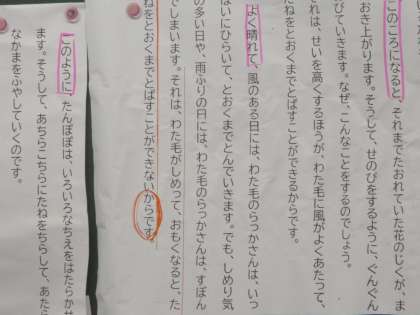 このころになると、それまでたおれていた花のじくが、ま
おき上がります。そうして、せのびをするように、ぐんぐん
びていきます。なぜ、こんなことをするのでしょう。
れは、せいを高くするほうが、わた毛に風がよくあたって、
たねをとおくまでとばすことができるからです。
よく晴れて、風のある日には、わた毛のらっかさんは、いっ
ぱいにひらいて、とおくまでとんでいきます。でも、しめり気
の多い日や、雨ふりの日には、わた毛のらっかさんは、すぼん
でしまいます。それは、わた毛がしめって、おもくなると、た
ねをとおくまでとばすことができないからです。
このように、たんぽぽは、いろいろなちえをはたらかせ
ます。そうして、あちらこちらにたねをちらして、あたら
なかまをふやしていくのです。